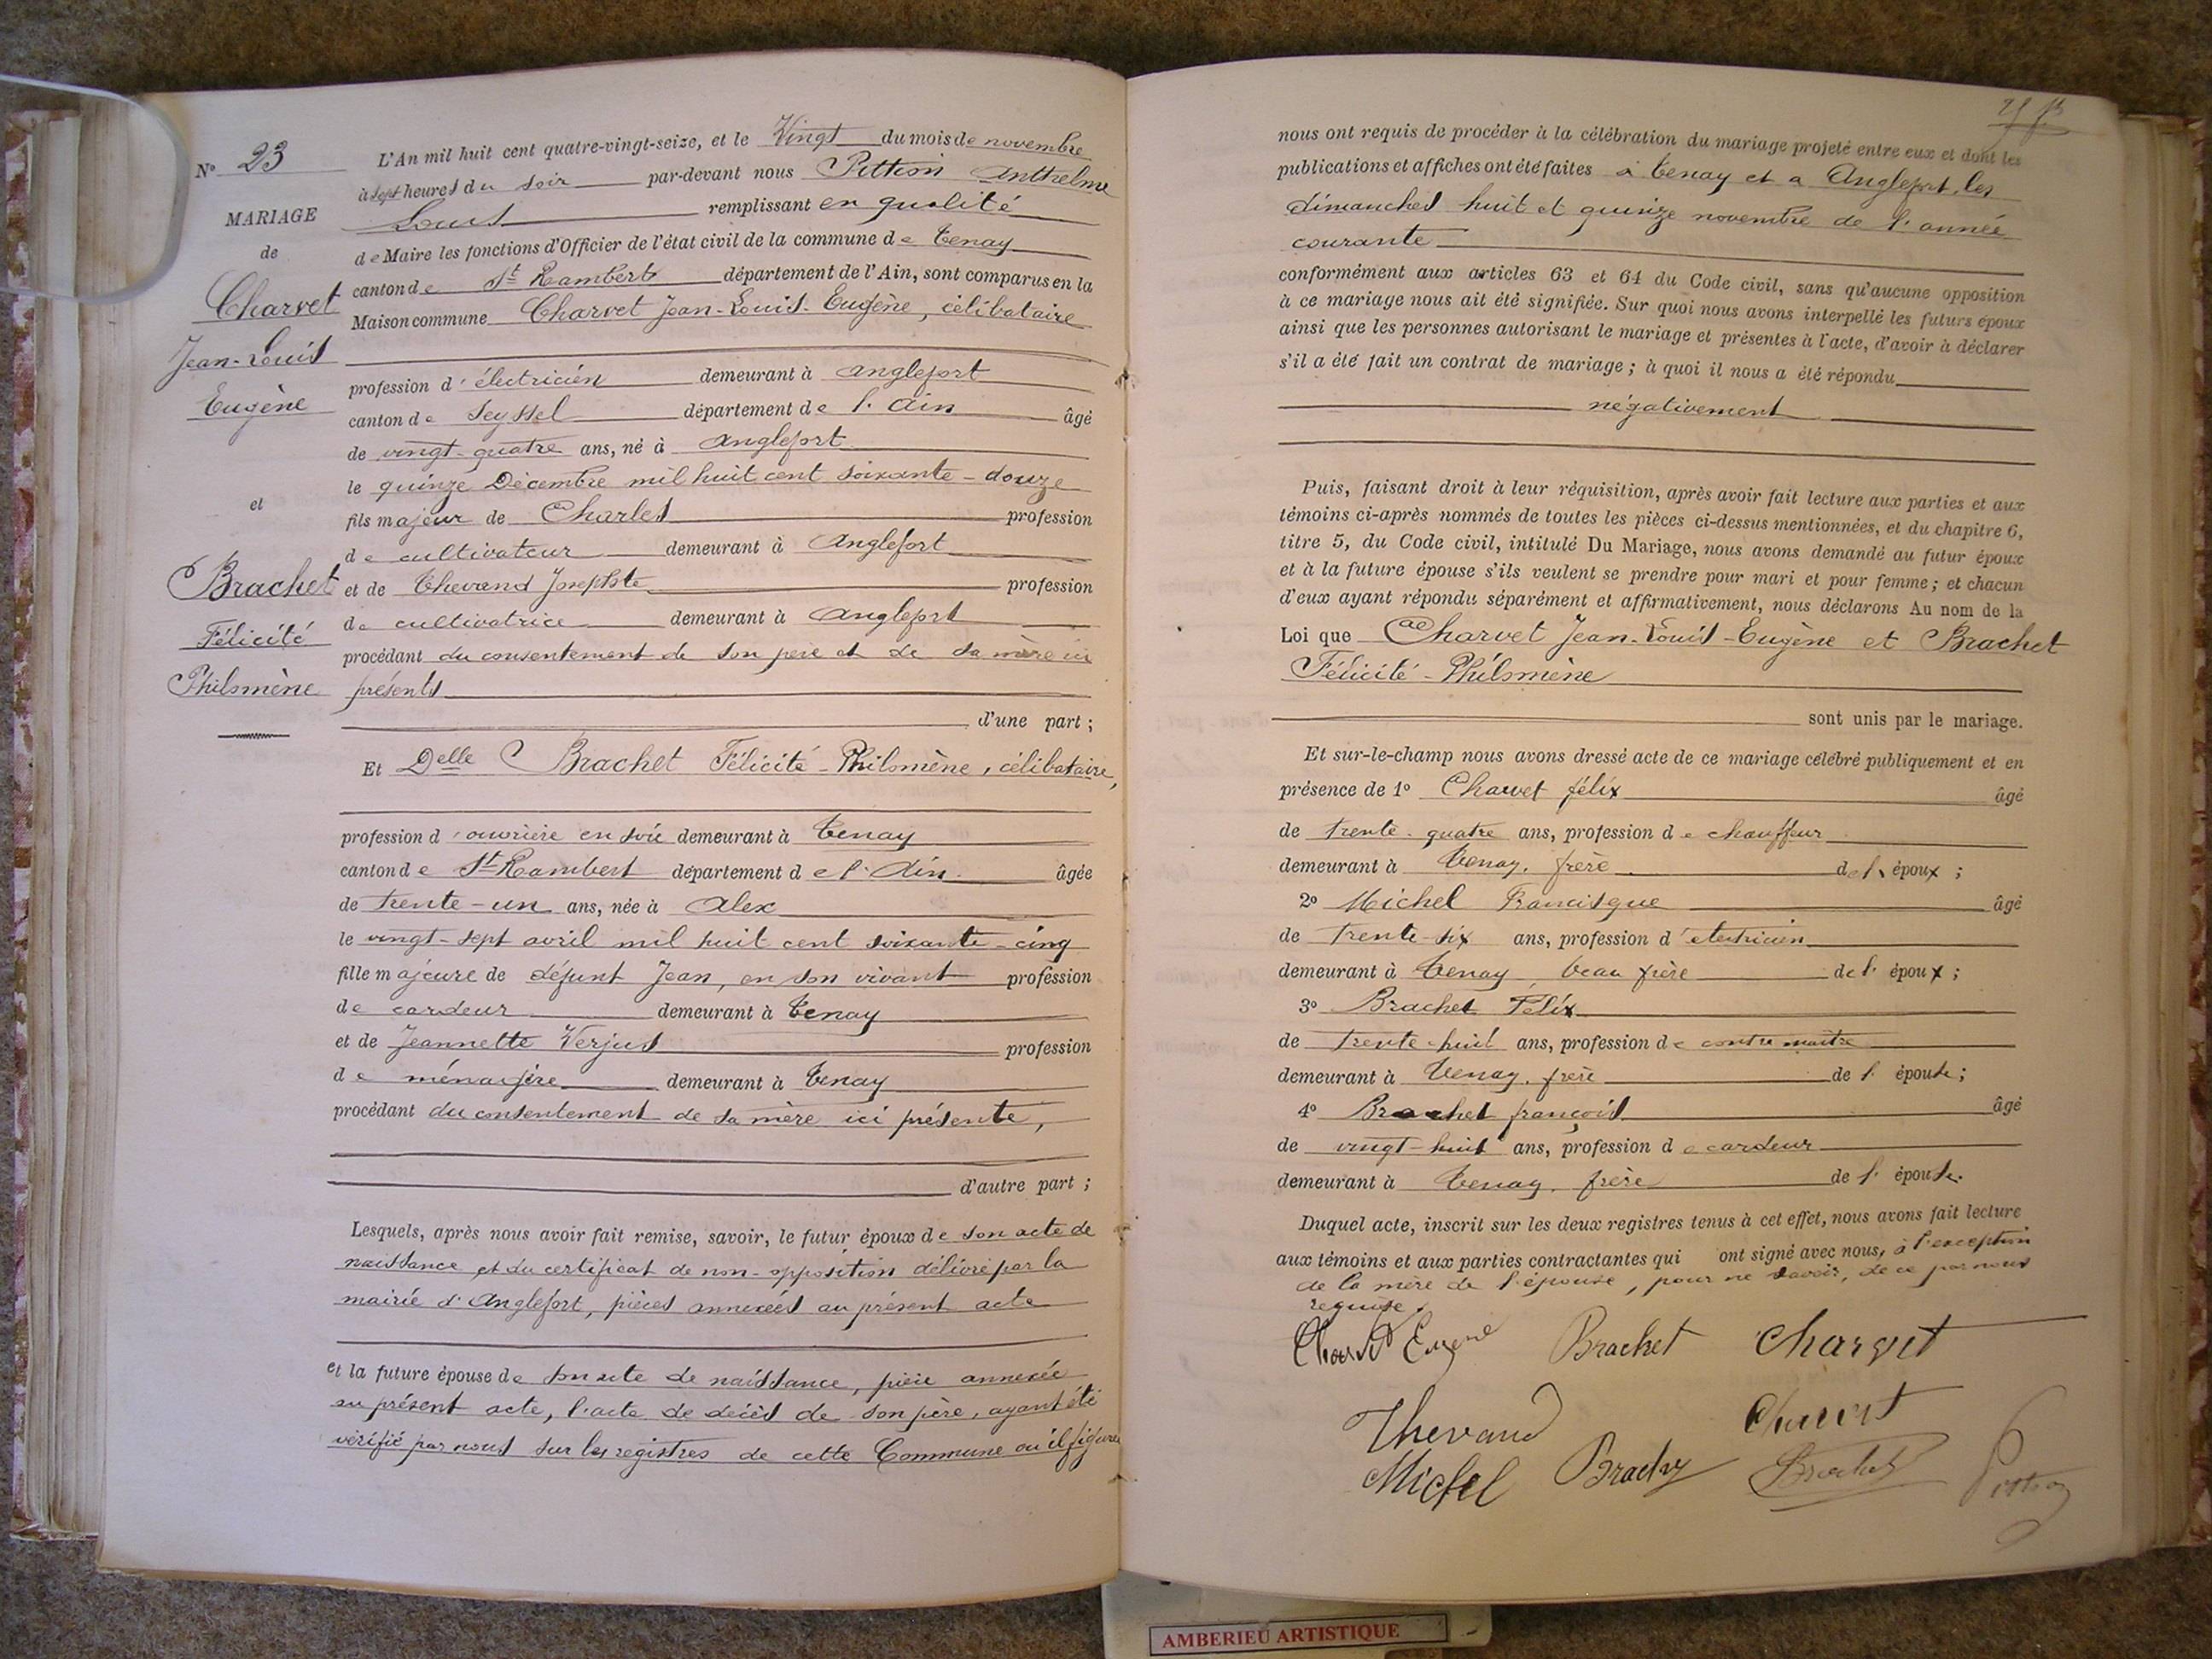 N° 23
MARIAGE
de
Charvet
Jean-Louis
Eugène
et
Brachet
Félicité
Philomène
L'An mil huit cent quatre-vingt-seize, et le Vingt du mois de novembre
à sept heures du soir par-devant nous Pittion Anthelme
Louis remplissant en qualité
de Maire les fonctions d'Officier de l'état civil de la commune de Tenay
canton de St Rambert département de l'Ain, sont comparus en la
Maison commune Charvet Jean-Louis-Eugène, célibataire
profession d'électricien demeurant à Anglefort
canton de Seyssel département de l'Ain âgé
de vingt-quatre ans, né à Anglefort
le quinze Décembre mil huit cent soixante-douze
fils majeur de Charles profession
de cultivateur demeurant à Anglefort
et de Thevand Josephte profession
de cultivatrice demeurant à Anglefort
procédant du consentement de son père et de sa mère ici
présents
d'une part ;
Et Delle Brachet Félicité-Philomène, célibataire,
profession d'ouvrière en soie demeurant à Tenay
canton de St Rambert département de l'Ain âgée
de trente-un ans, née à Alex
le vingt-sept avril mil huit cent soixante-cinq
fille majeure de défunt Jean, en son vivant profession
de cardeur demeurant à Tenay
et de Jeannette Verjus profession
de ménagère demeurant à Tenay
procédant du consentement de sa mère ici présente,
d'autre part ;
Lesquels, après nous avoir fait remise, savoir, le futur époux de son acte de
naissance et du certificat de non-opposition délivré par la
mairie d'Anglefort, pièces annexées au présent acte
et la future épouse de son acte de naissance, pièce annexée
au présent acte, l'acte de décès de son père, ayant été
vérifié par nous sur les registres de cette Commune où il figure
nous ont requis de procéder à la célébration du mariage projeté entre eux et dont les
publications et affiches ont été faites à Tenay et à Anglefort, les
dimanches huit et quinze novembre de l'année
courante
conformément aux articles 63 et 64 du Code civil, sans qu'aucune opposition
à ce mariage nous ait été signifiée. Sur quoi nous avons interpellé les futurs époux
ainsi que les personnes autorisant le mariage et présentes à l'acte, d'avoir à déclarer
s'il a été fait un contrat de mariage ; à quoi il nous a été répondu
négativement
Puis, faisant droit à leur réquisition, après avoir fait lecture aux parties et aux
témoins ci-après nommés de toutes les pièces ci-dessus mentionnées, et du chapitre 6,
titre 5, du Code civil, intitulé Du Mariage, nous avons demandé au futur époux
et à la future épouse s'ils veulent se prendre pour mari et pour femme ; et chacun
d'eux ayant répondu séparément et affirmativement, nous déclarons Au nom de la
Loi que Charvet Jean-Louis-Eugène et Brachet
Félicité-Philomène
sont unis par le mariage.
Et sur-le-champ nous avons dressé acte de ce mariage célébré publiquement et en
présence de 1° Charvet félix âgé
de trente-quatre ans, profession de chauffeur
demeurant à Tenay, frère de l'époux ;
2° Michel Francisque âgé
de trente-six ans, profession d'électricien
demeurant à Tenay, beau frère de l'époux ;
3° Brachet Félix
de trente-huit ans, profession de contremaître
demeurant à Tenay, frère de l'épouse ;
4° Brachet françois âgé
de vingt-huit ans, profession de cardeur
demeurant à Tenay, frère de l'épouse.
Duquel acte, inscrit sur les deux registres tenus à cet effet, nous avons fait lecture
aux témoins et aux parties contractantes qui ont signé avec nous, à l'exception
de la mère de l'épouse, pour ne savoir, de ce par nous
requise.
Charvet Eugene Brachet Charvet
Thevand Charvet
Michel Brachet Brachet Pittion
AMBERIEU ARTISTIQUE